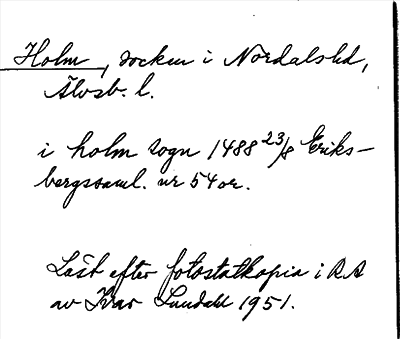 Holm, socken i Nordalshd,
Älvsb. l.
i holm sogn 1488 23/8 Eriks-
bergssaml. nr 54 or.
Läst efter fotostatkopia i RA
av Ivar Lundahl 1951.